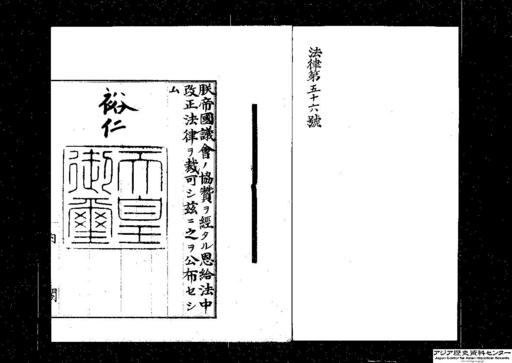 法律第五十六號
朕帝國議會ノ協贊ヲ經タル恩給法中
改正法律ヲ裁可シ茲ニ之ヲ公布セシ
ム
裕仁
天皇
御璽
内
閣
アジア歴史資料センター
Japan Center for Asian Historical Records